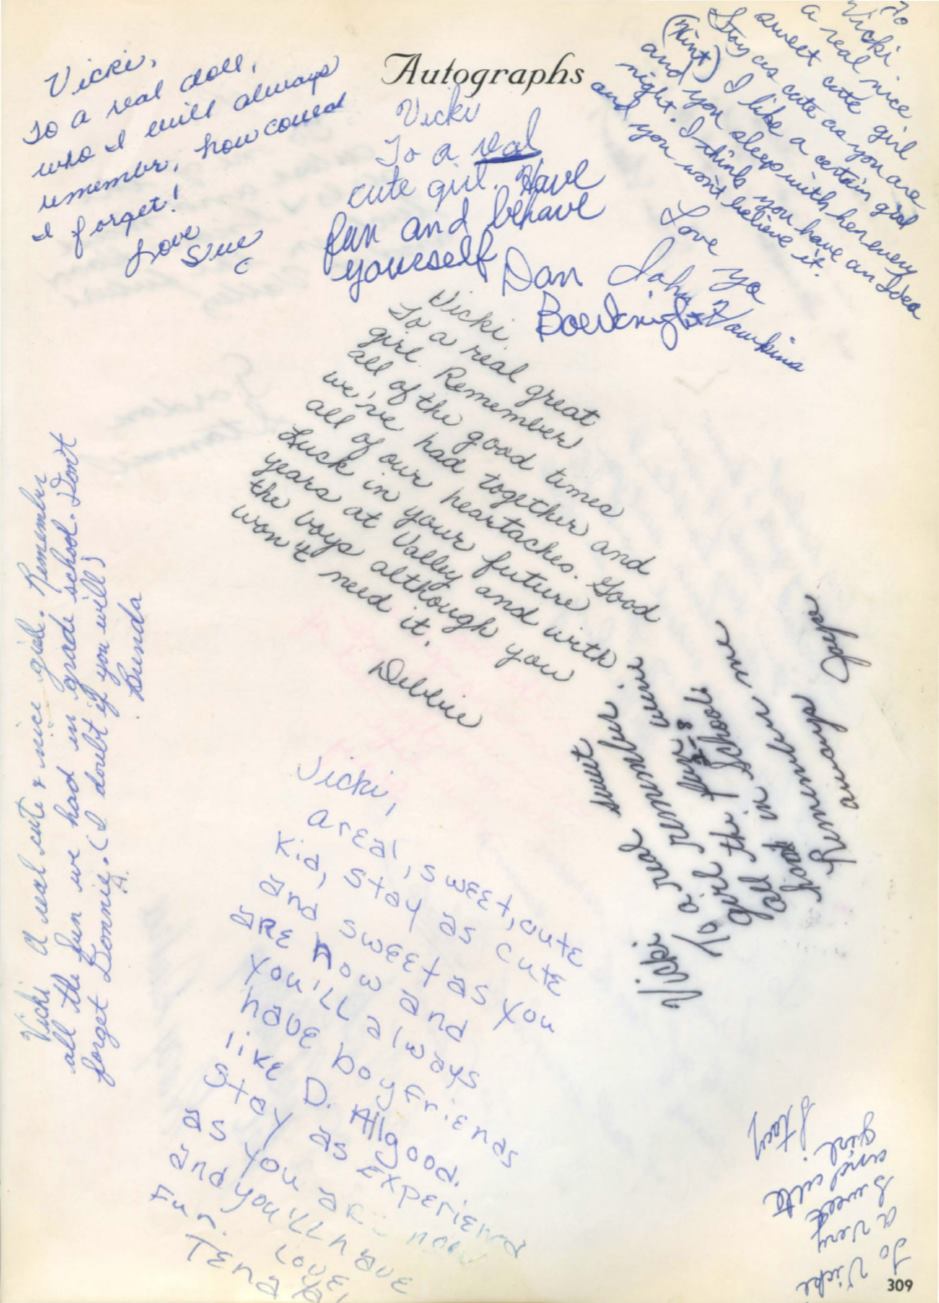 Autographs
Vicki,
To a real doll,
who I will always
remember, how could
I forget!
Love
Sue
Vicki
To a real
cute girl. Have
fun and behave
yourself
Dan
Boerknight
To
Vicki.
a real nice
sweet cute girl
Stay as cute as you are
(Hint) I like a certain girl
and you sleep with her every
night. I think you have an Idea
and you won't believe it.
Love ya
John Hawkins
Vicki,
To a real great
girl. Remember
all of the good times
we've had together and
all of our heartaches. Good
Luck in your future
years at Valley and with
the boys although you
won't need it.
Debbie
Vicki A real cute & nice girl. Remember
all the fun we had in grade school. Don't
forget Bonnie A. (I doubt if you will)
Benda
Vicki
To a real sweet
girl remember
all the fun
in schools
Good
remember me
always
Vicki,
a real, sweet, cute
Kid, stay as cute
and sweet as you
are now and
you'll always
have boyfriends
like D. Allgood.
Stay as Experiend
as you are now
and you'll have
Fun.
Love,
Tena
To Vicki
a very
sweet
and cute
girl.
Stacy
309